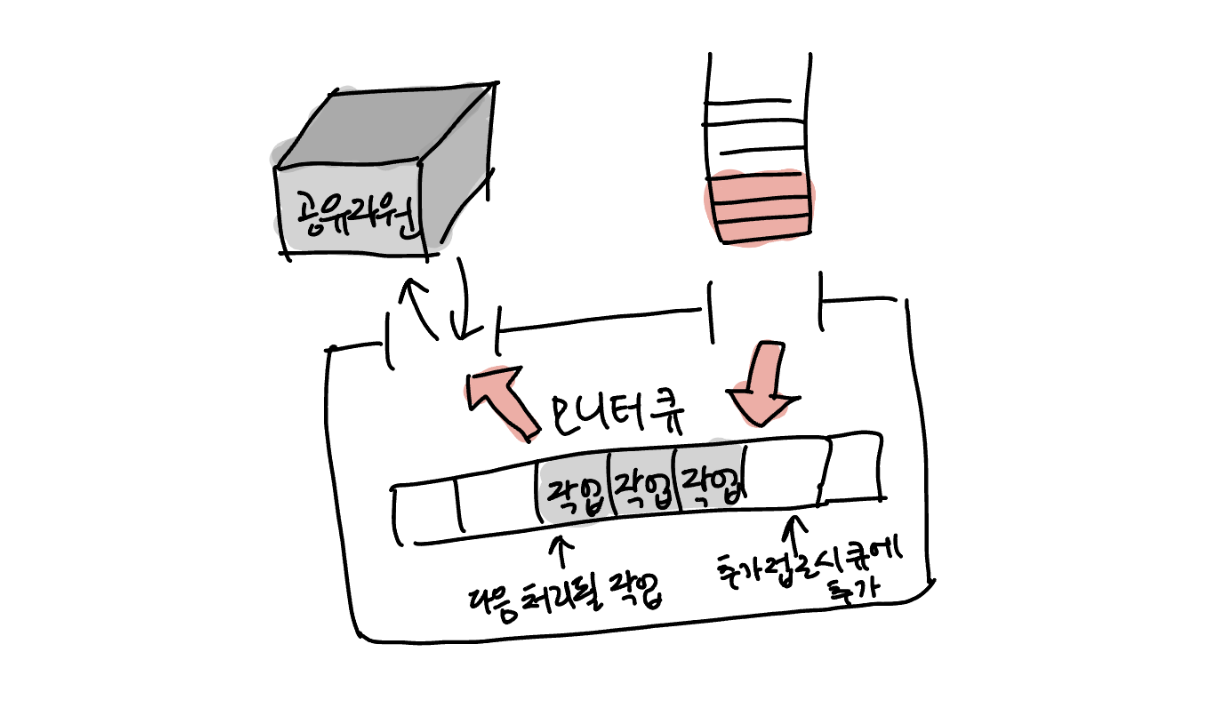 공유자원
모니터 큐
작업 작업 작업
다음 처리될 작업
추가 접근시 큐에
추가